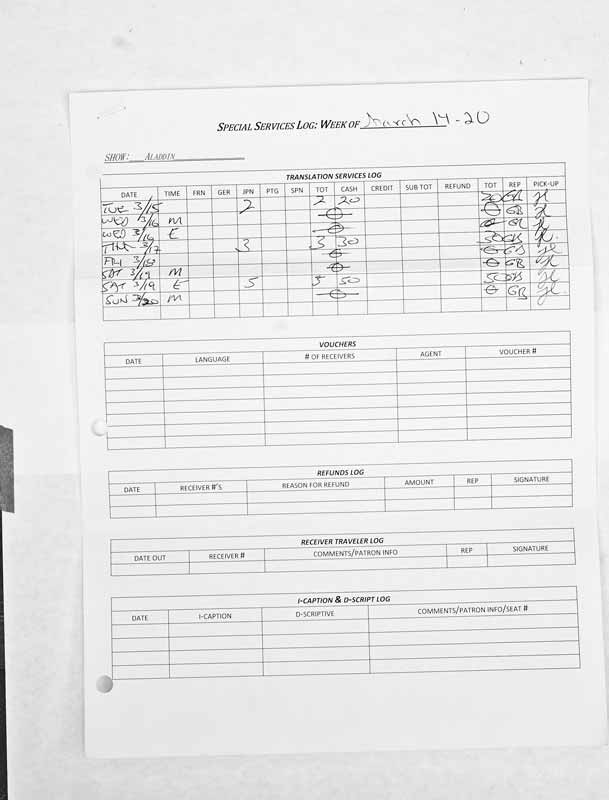 SPECIAL SERVICES LOG: WEEK OF March 14-20
SHOW: ALADDIN
TRANSLATION SERVICES LOG
DATE TIME FRN GER JPN PTG SPN TOT CASH CREDIT SUB TOT REFUND TOT REP PICK-UP
TUE 3/15 2 2 20 20 GB
WED 3/16 M GB
WED 3/16 E
THU 3/17 3 3 30 30 GB
FRI GB
SAT 3/19 M GB
SAT 3/19 E 5 5 50 50 GB
SUN 3/20 M GB
VOUCHERS
DATE LANGUAGE # OF RECEIVERS AGENT VOUCHER #
REFUNDS LOG
DATE RECEIVER #'S REASON FOR REFUND AMOUNT REP SIGNATURE
RECEIVER TRAVELER LOG
DATE OUT RECEIVER # COMMENTS/PATRON INFO REP SIGNATURE
I-CAPTION & D-SCRIPT LOG
DATE I-CAPTION D-SCRIPTIVE COMMENTS/PATRON INFO/SEAT #